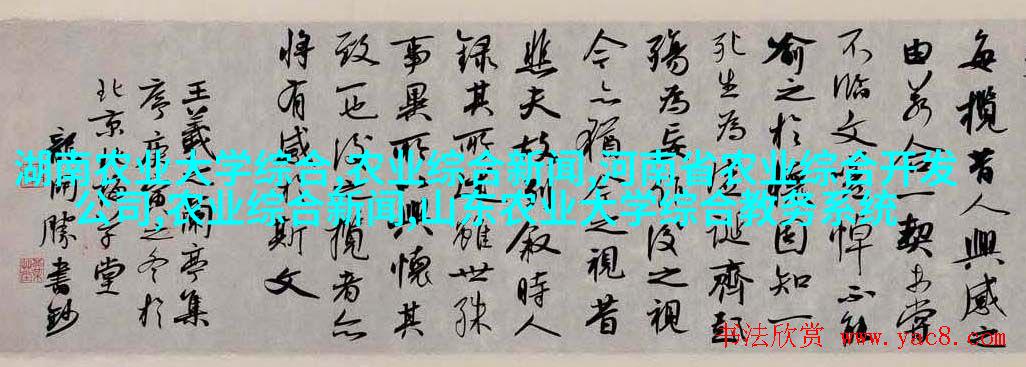 每攬昔人興感之
由若合一契未嘗
不臨文嗟悼不能
喻之於懷固知一
死生為虛誕齊彭
殤為妄作後之視
今亦猶今之視昔
悲夫故列敘時人
録其所述雖世殊
事異所以興懷其
致一也後之攬者亦
將有感於斯文
王羲之蘭亭集
序庚寅之冬於
北京學堂
開勝書鈔
湖南农业大学综合,农业综合新闻,河南省农业综合开发
公司,农业综合新闻,山东农业大学综合教务系统
书法欣赏 www.yac8.com